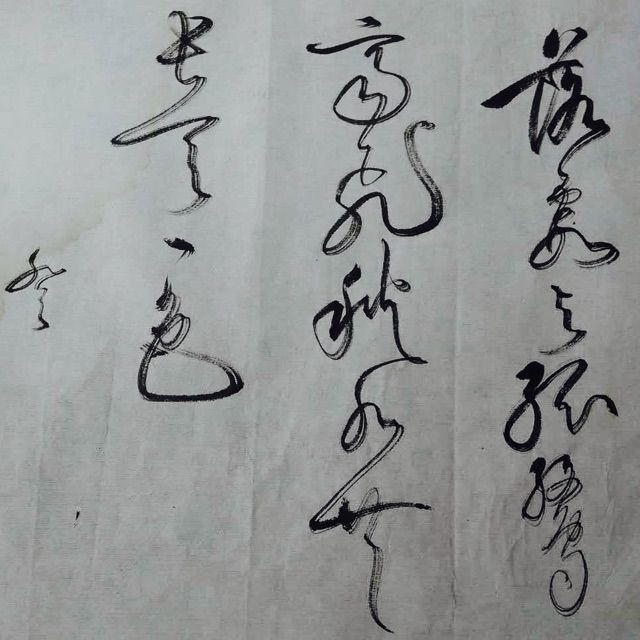 落霞与孤鹜
齐飞秋水共
长天一色